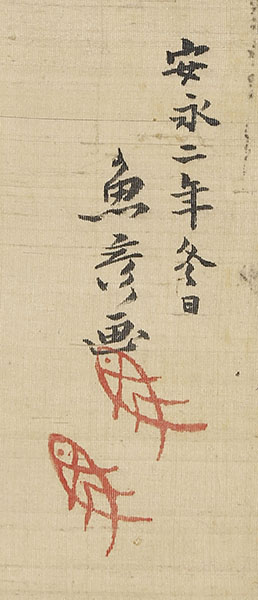 安永二年冬日
魚彦画